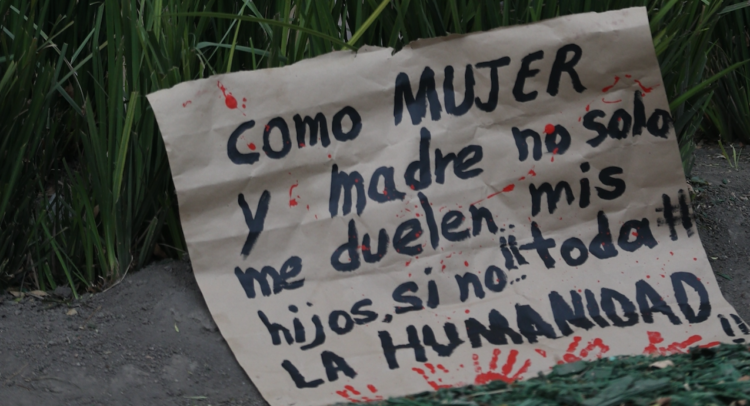 COMO MUJER
y madre no solo
me duelen.. mis
hijos, si no... ¡¡toda!!
LA HUMANIDAD ¡¡